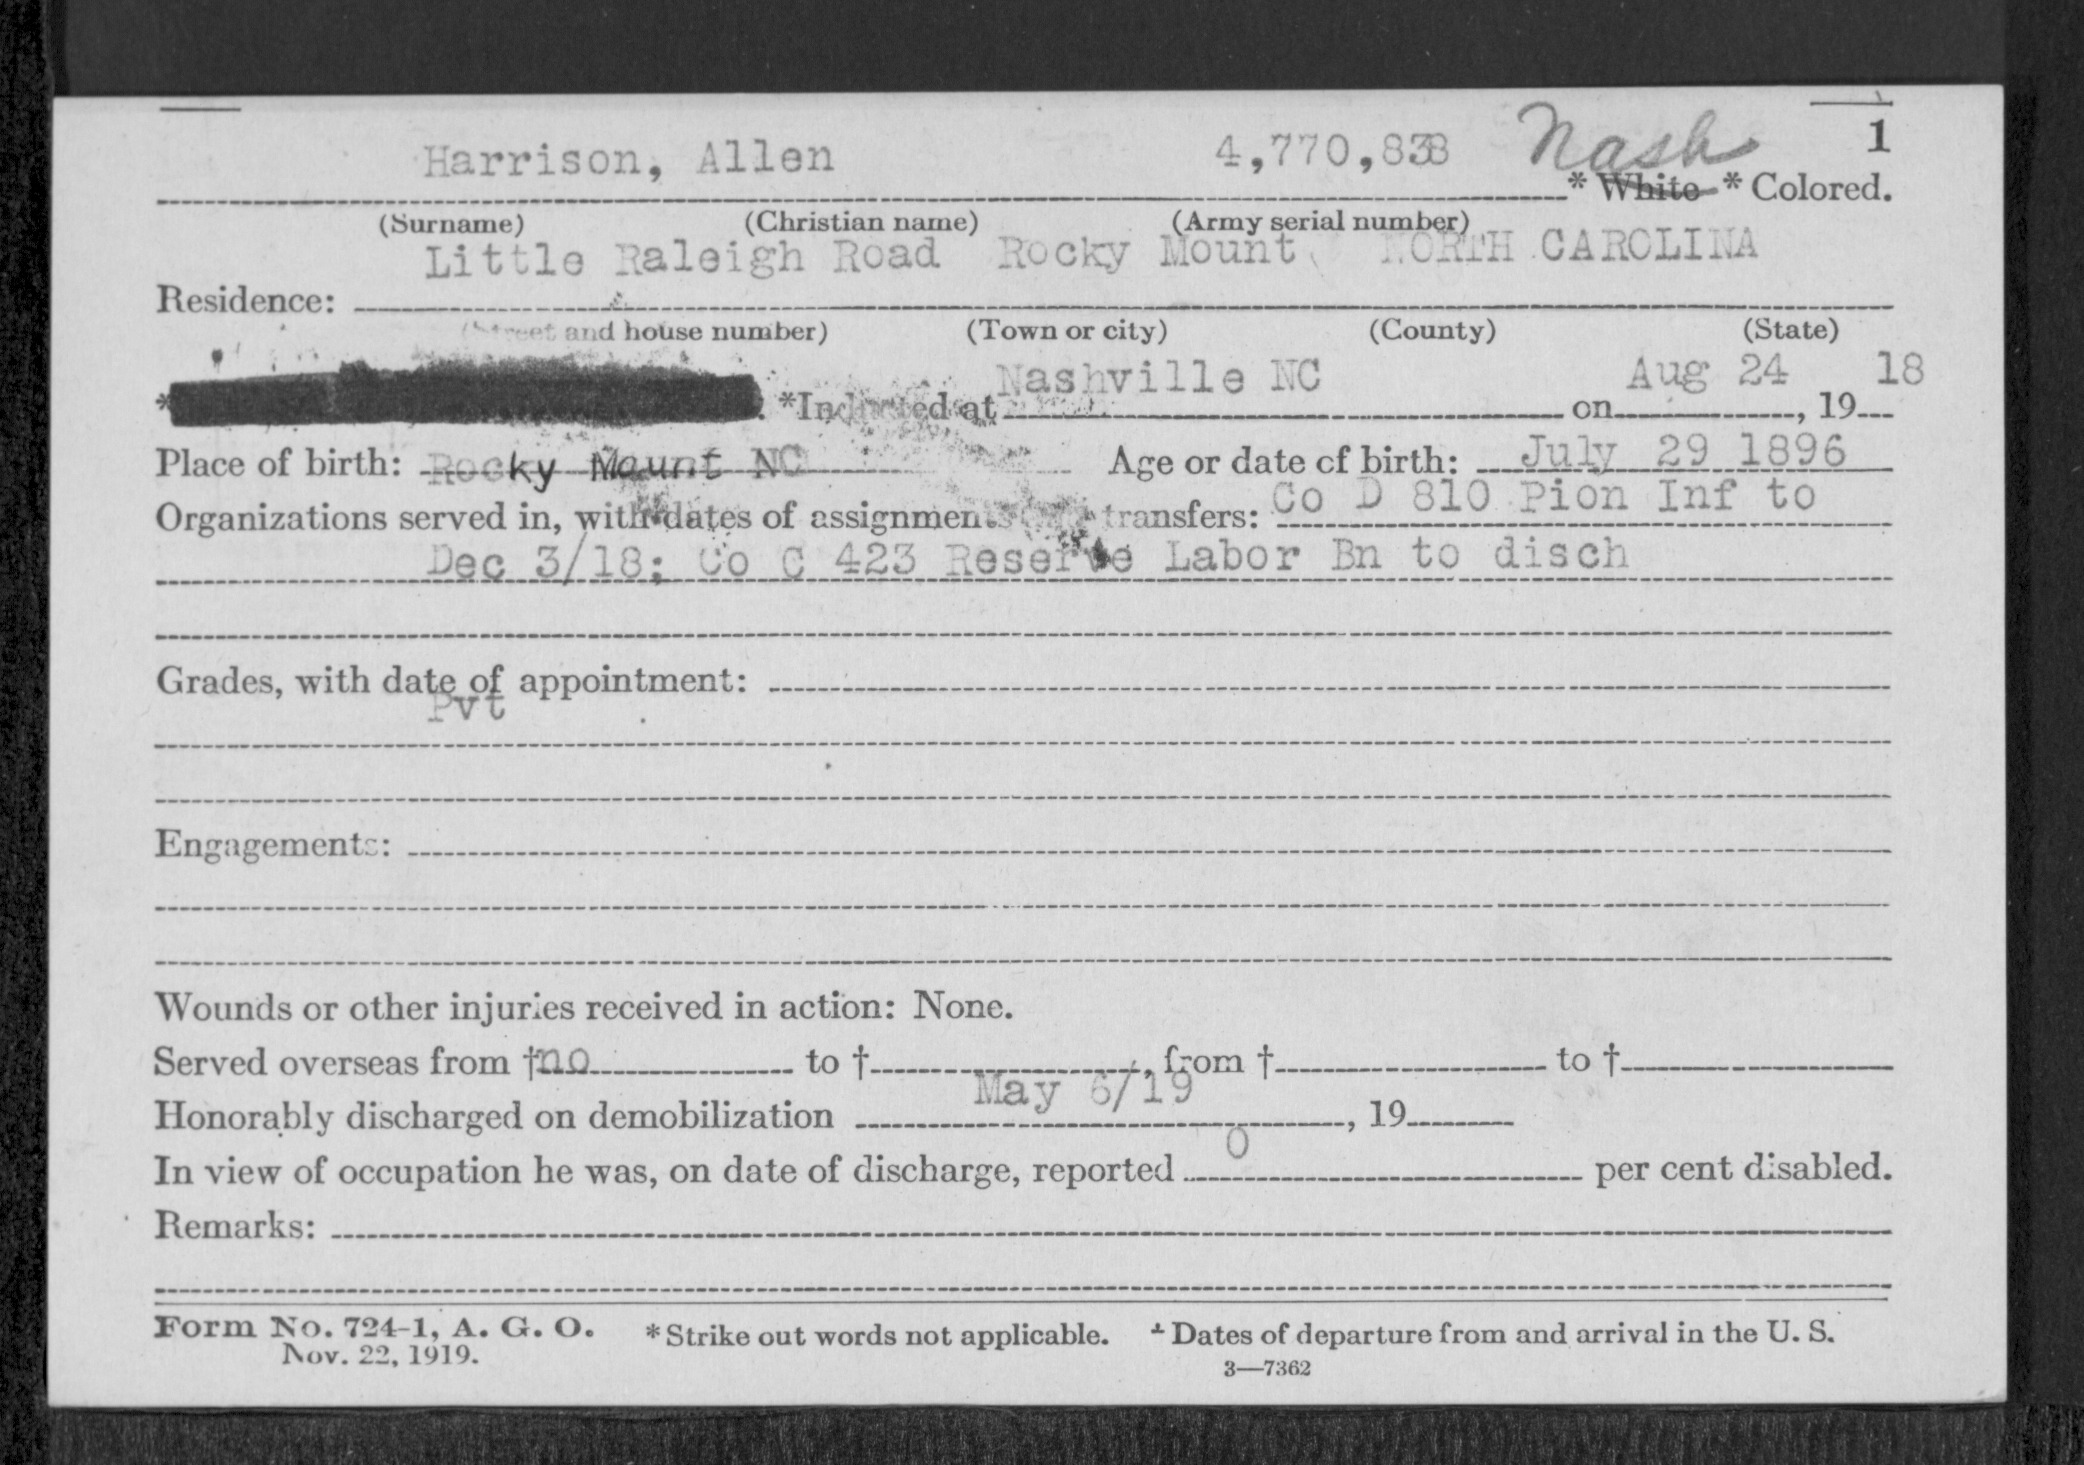 Harrison, Allen 4,770,838 Nash 1
* White * Colored.
(Surname) (Christian name) (Army serial number)
Little Raleigh Road Rocky Mount NORTH CAROLINA
Residence:
(Street and house number) (Town or city) (County) (State)
* . *Inducted at Nashville NC on Aug 24, 19 18
Place of birth: Rocky Mount NC Age or date of birth: July 29 1896
Organizations served in, with dates of assignments transfers: Co D 810 Pion Inf to
Dec 3/18; Co C 423 Reserve Labor Bn to disch
Grades, with date of appointment:
Pvt
Engagements:
Wounds or other injuries received in action: None.
Served overseas from †no to †, from † to †
Honorably discharged on demobilization May 6/19, 19
In view of occupation he was, on date of discharge, reported 0 per cent disabled.
Remarks:
Form No. 724-1, A. G. O. *Strike out words not applicable. † Dates of departure from and arrival in the U. S.
Nov. 22, 1919. 3—7362